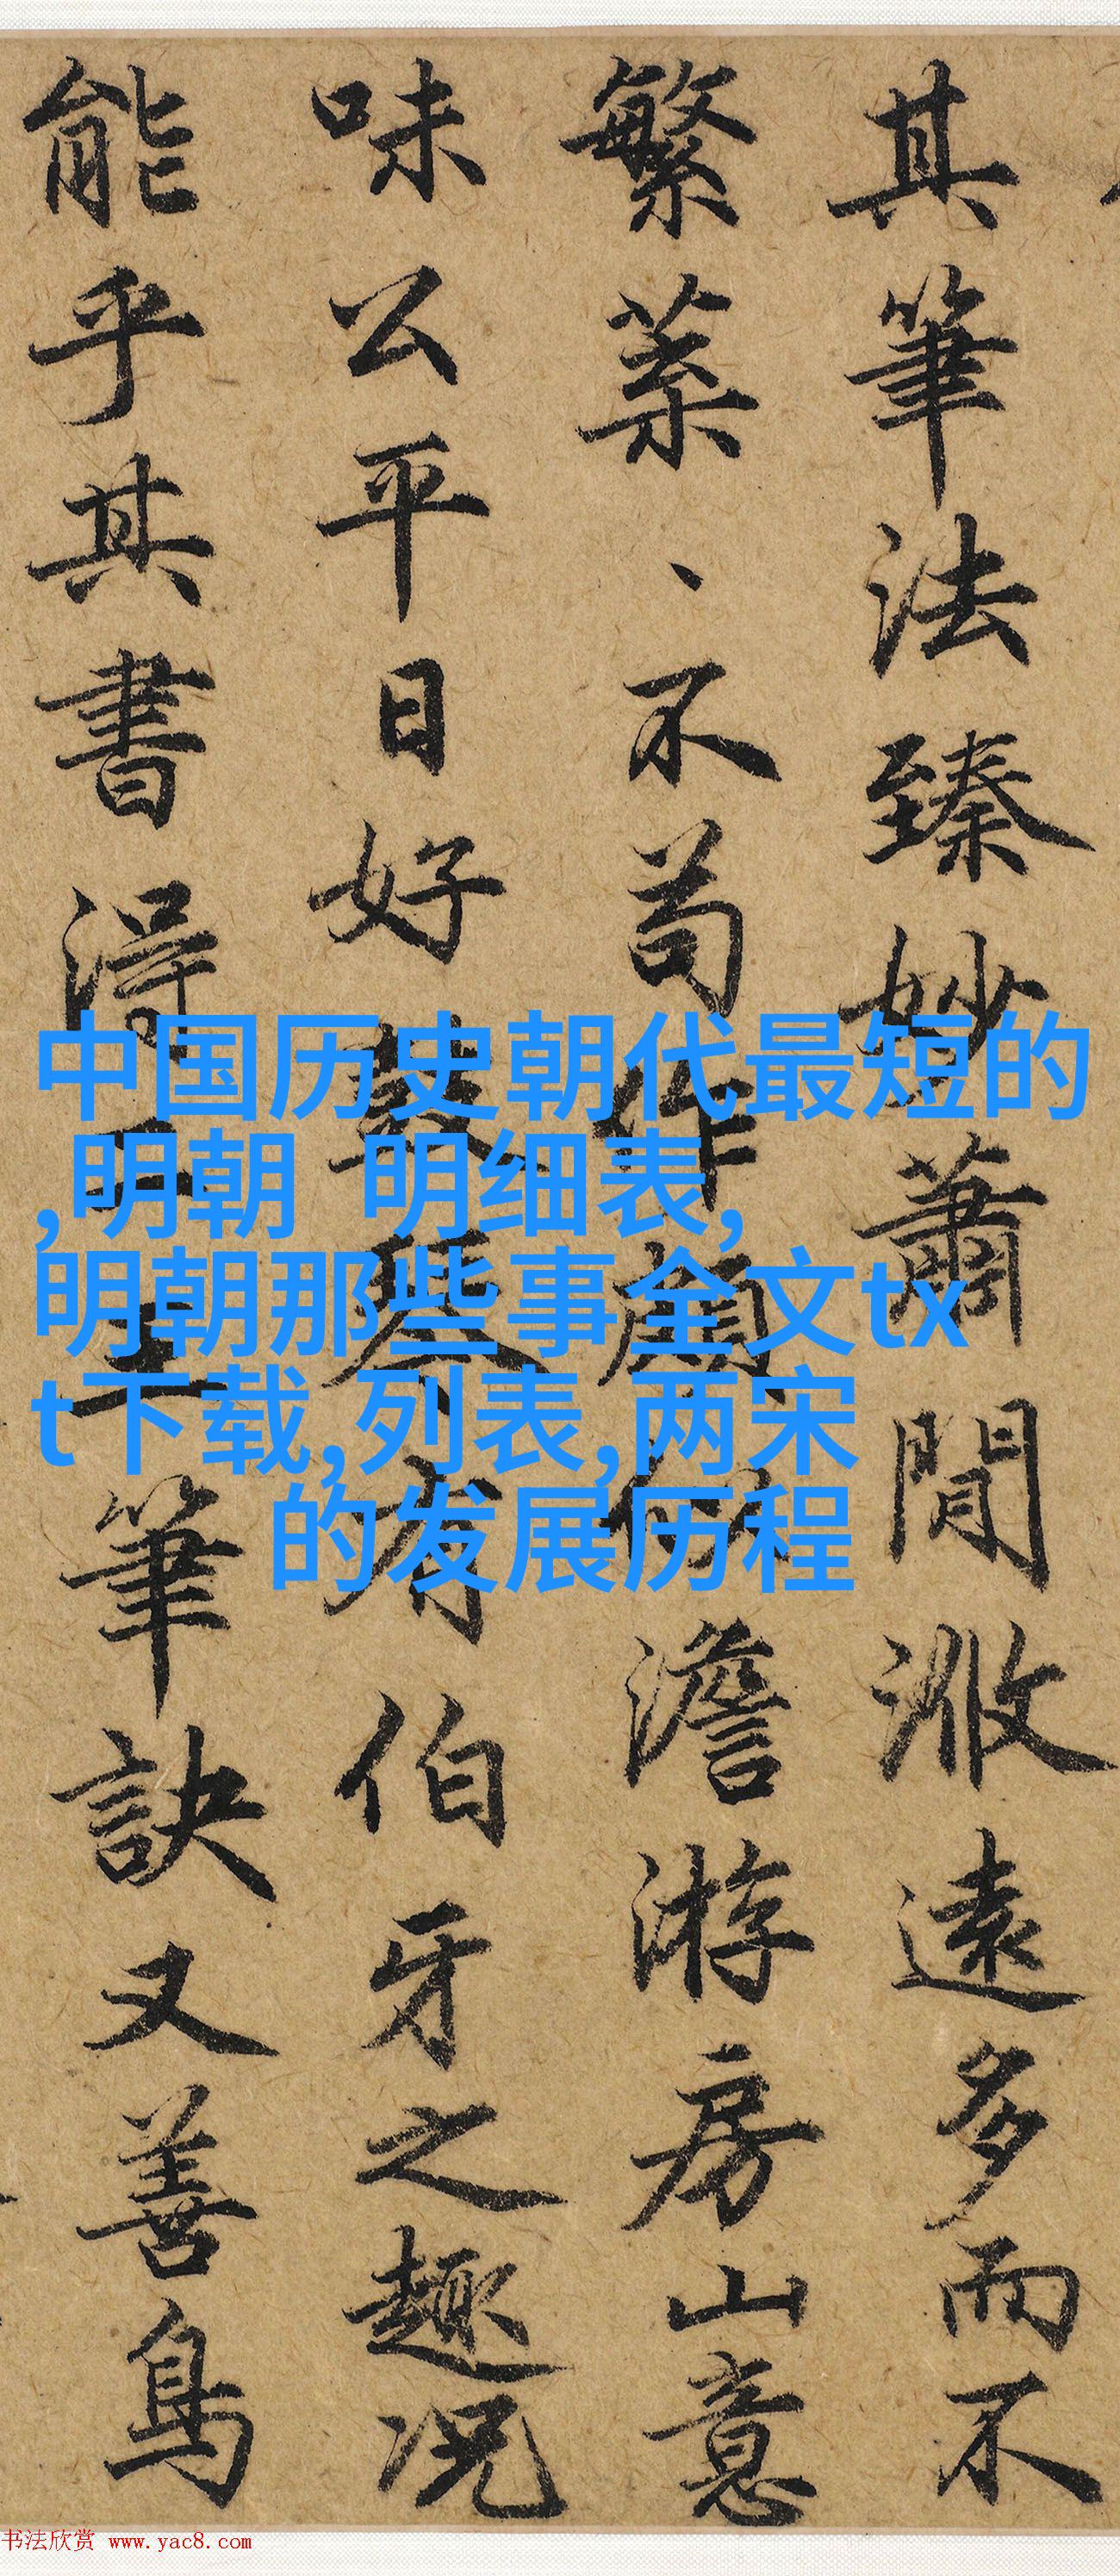 其筆法臻妙蕭閒散遠多而不
繁菜、不苟作顧似澹游房山意
味公平日好鼓琴有伯牙之趣況
能乎其書得二王筆訣又善鳥
中国历史朝代最短的
,明朝 明细表,
明朝那些事全文tx
t下载,列表,两宋
的发展历程
书法欣赏 www.yac8.com